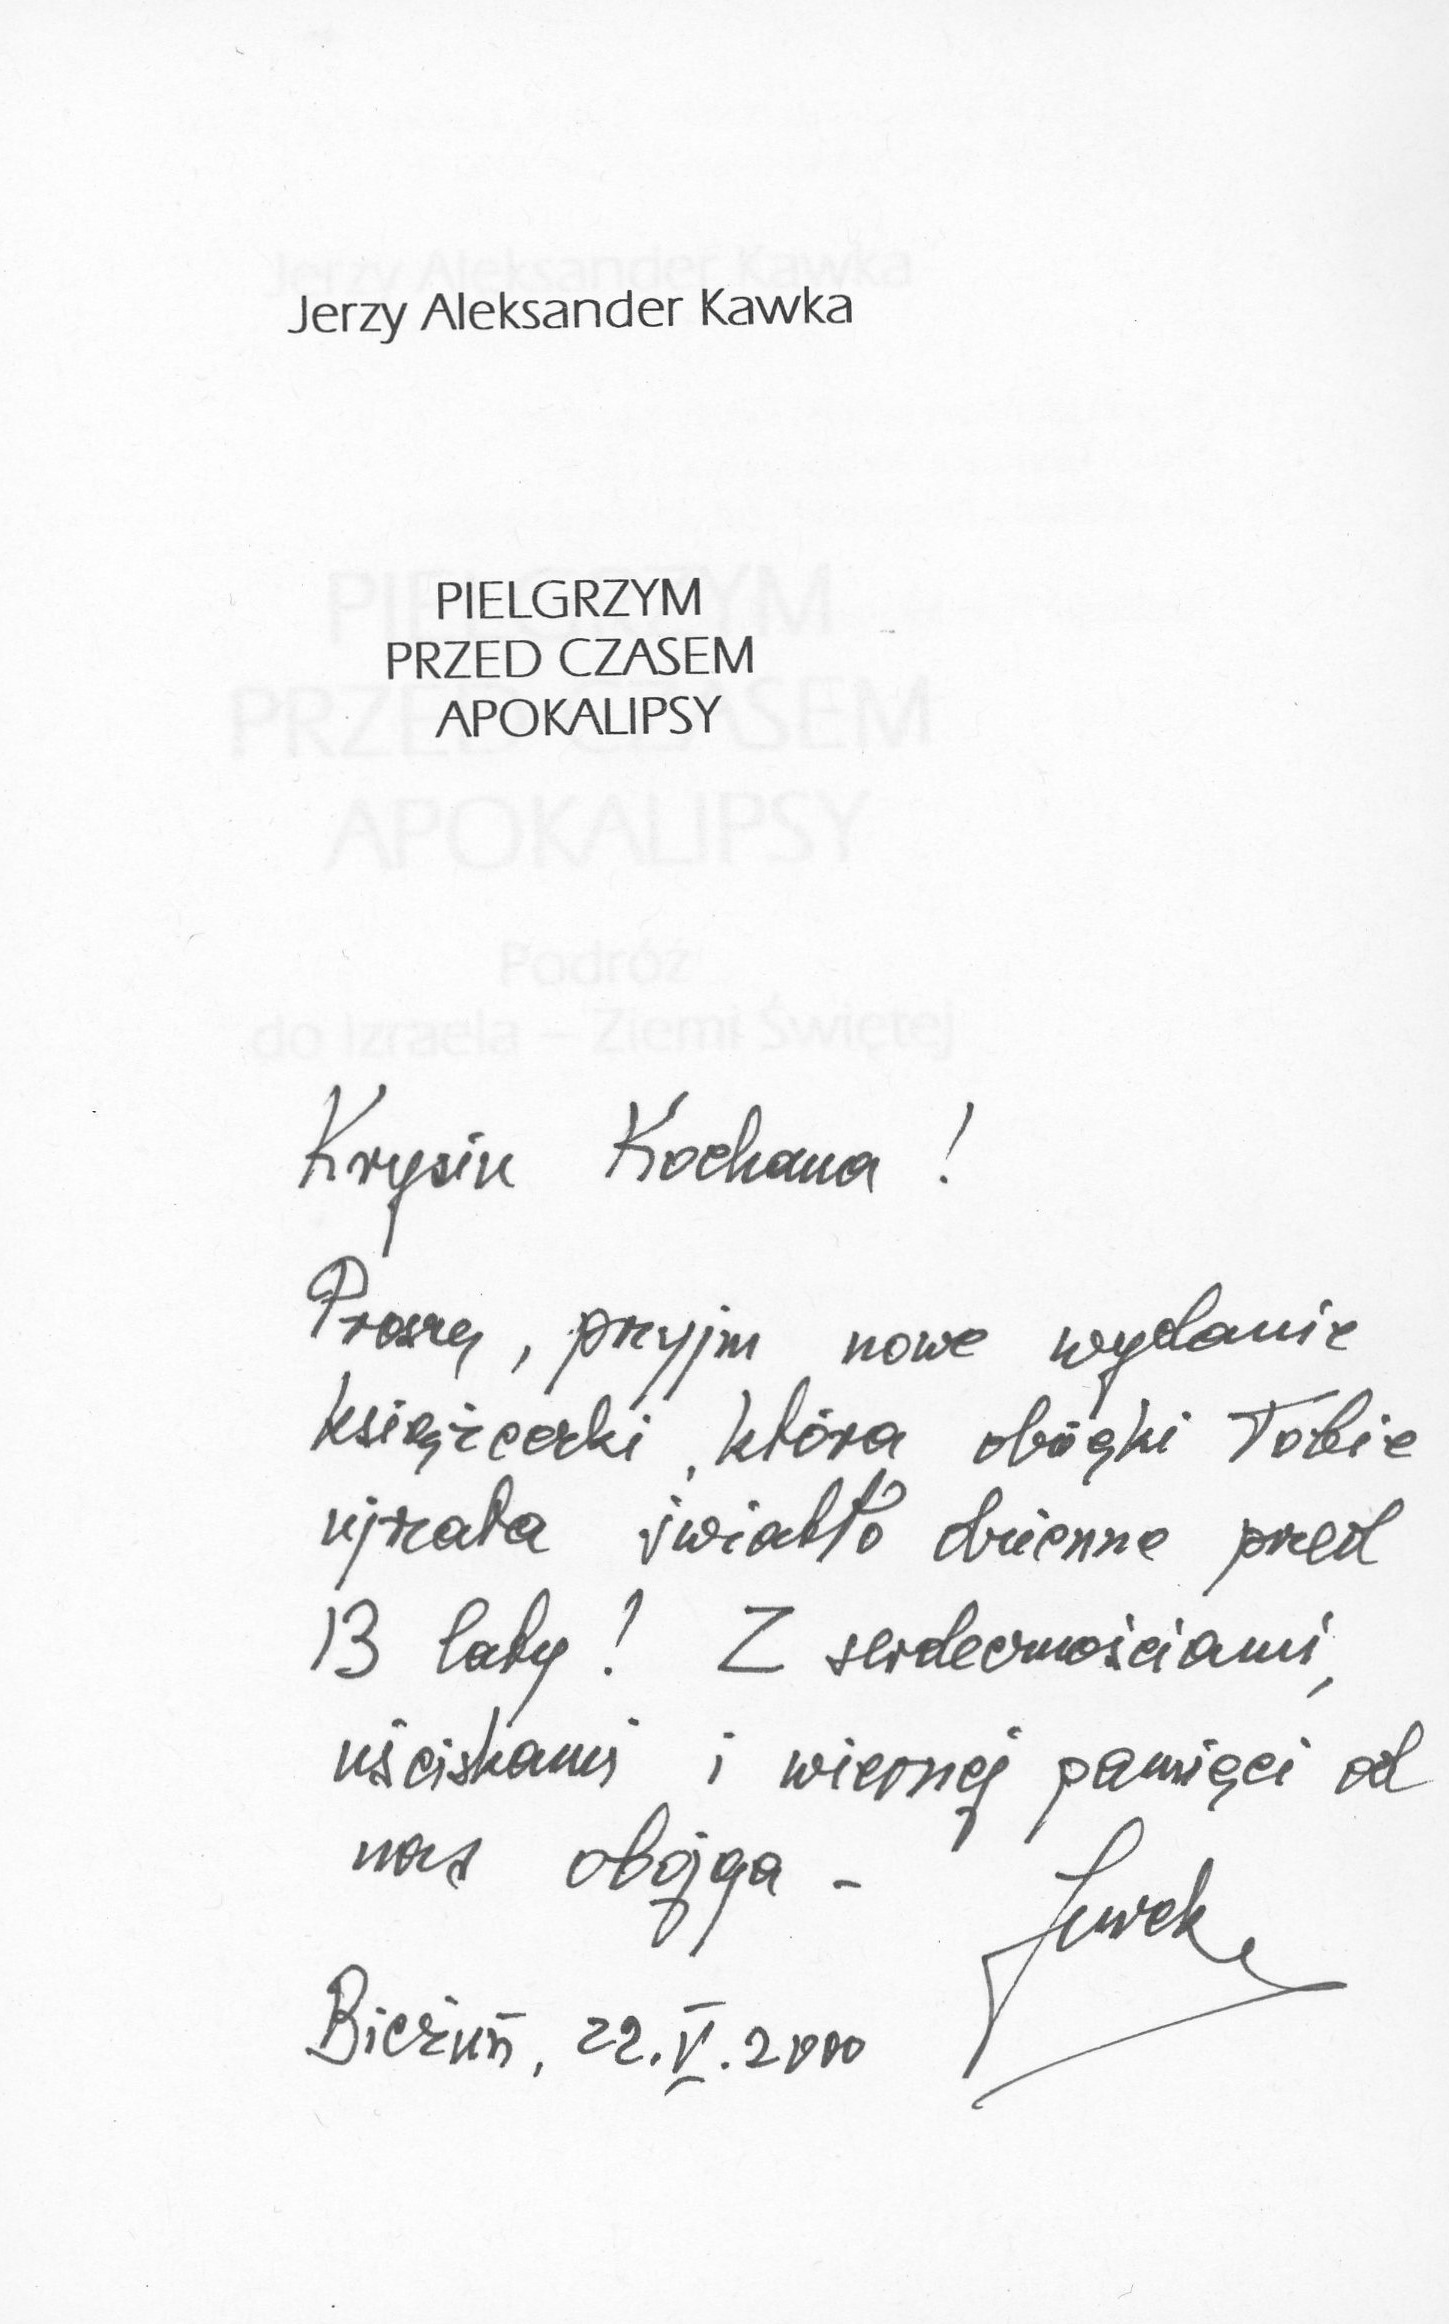 Jerzy Aleksander Kawka
PIELGRZYM
PRZED CZASEM
APOKALIPSY
Podróż
do Izraela – Ziemi Świętej
Krysiu Kochana !
Proszę, przyjm nowe wydanie
książeczki, która dzięki Tobie
ujrzała światło dzienne przed
13 laty! Z serdecznościami,
uściskami i wiernej pamięci od
nas obojga –
Jurek
Bieżuń, 22.V.2000